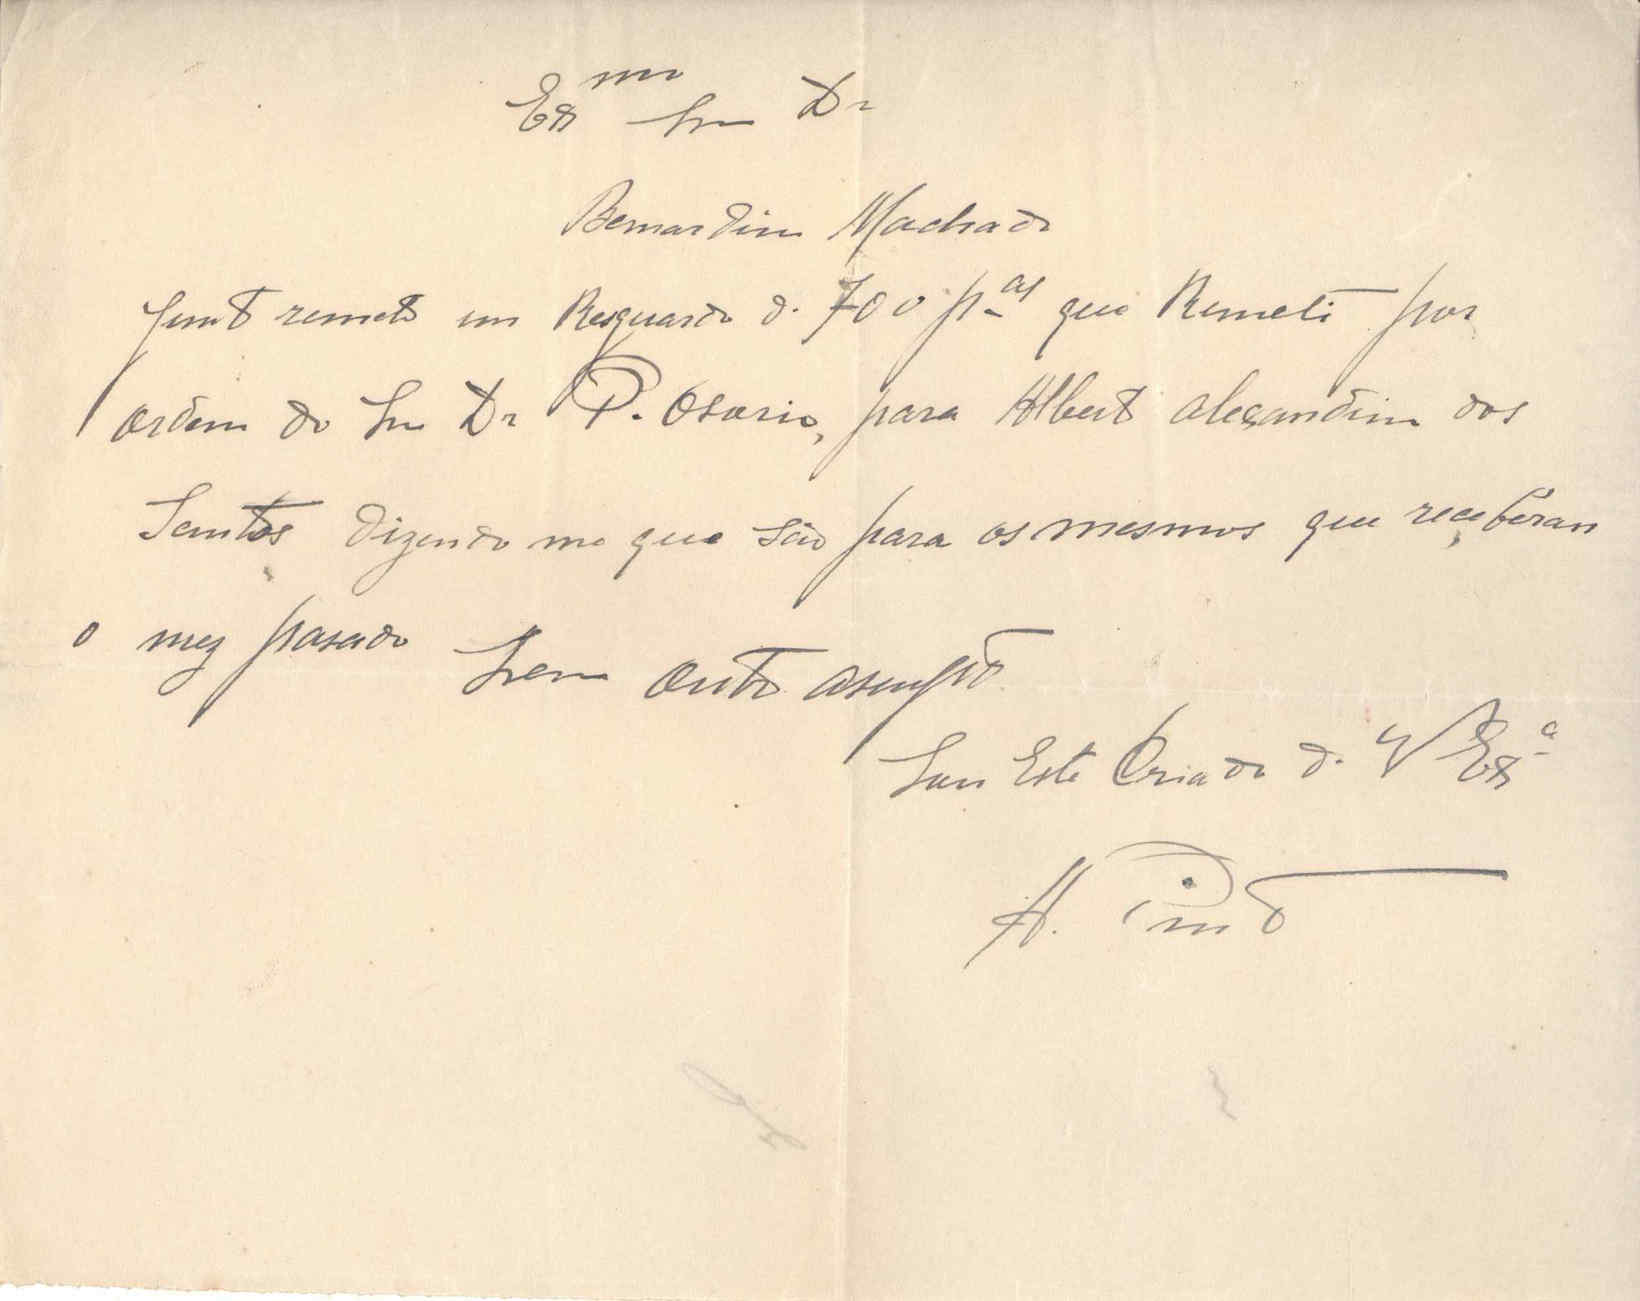 Exmo Snr Dr
Bernardino Machado
Junto remeto um Resguardo d. 700 p.as que Remeti por
ordem do Snr Dr P. Osorio, para Alberto aleçandrino dos
Santos dizendo me que são para os mesmos que reçeberan
o mez pasado Sem outro asumpto
Sou Este Criado d. V Exa
A. Pinto